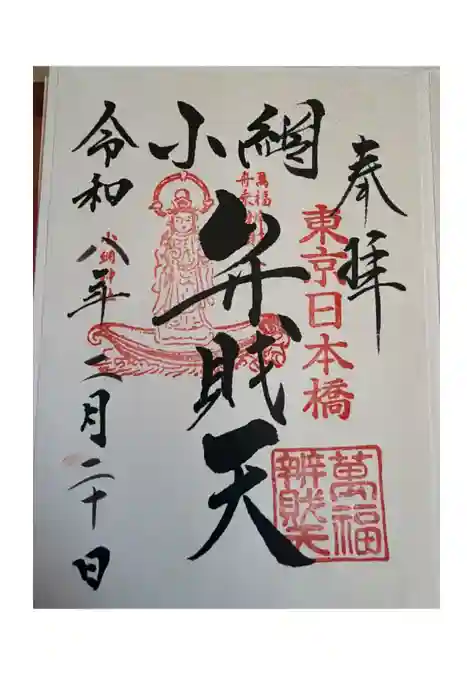 奉拝
東京日本橋
萬福
辨財天
小網
弁財天
萬福
舟乗
令和八年二月二十日
小網神